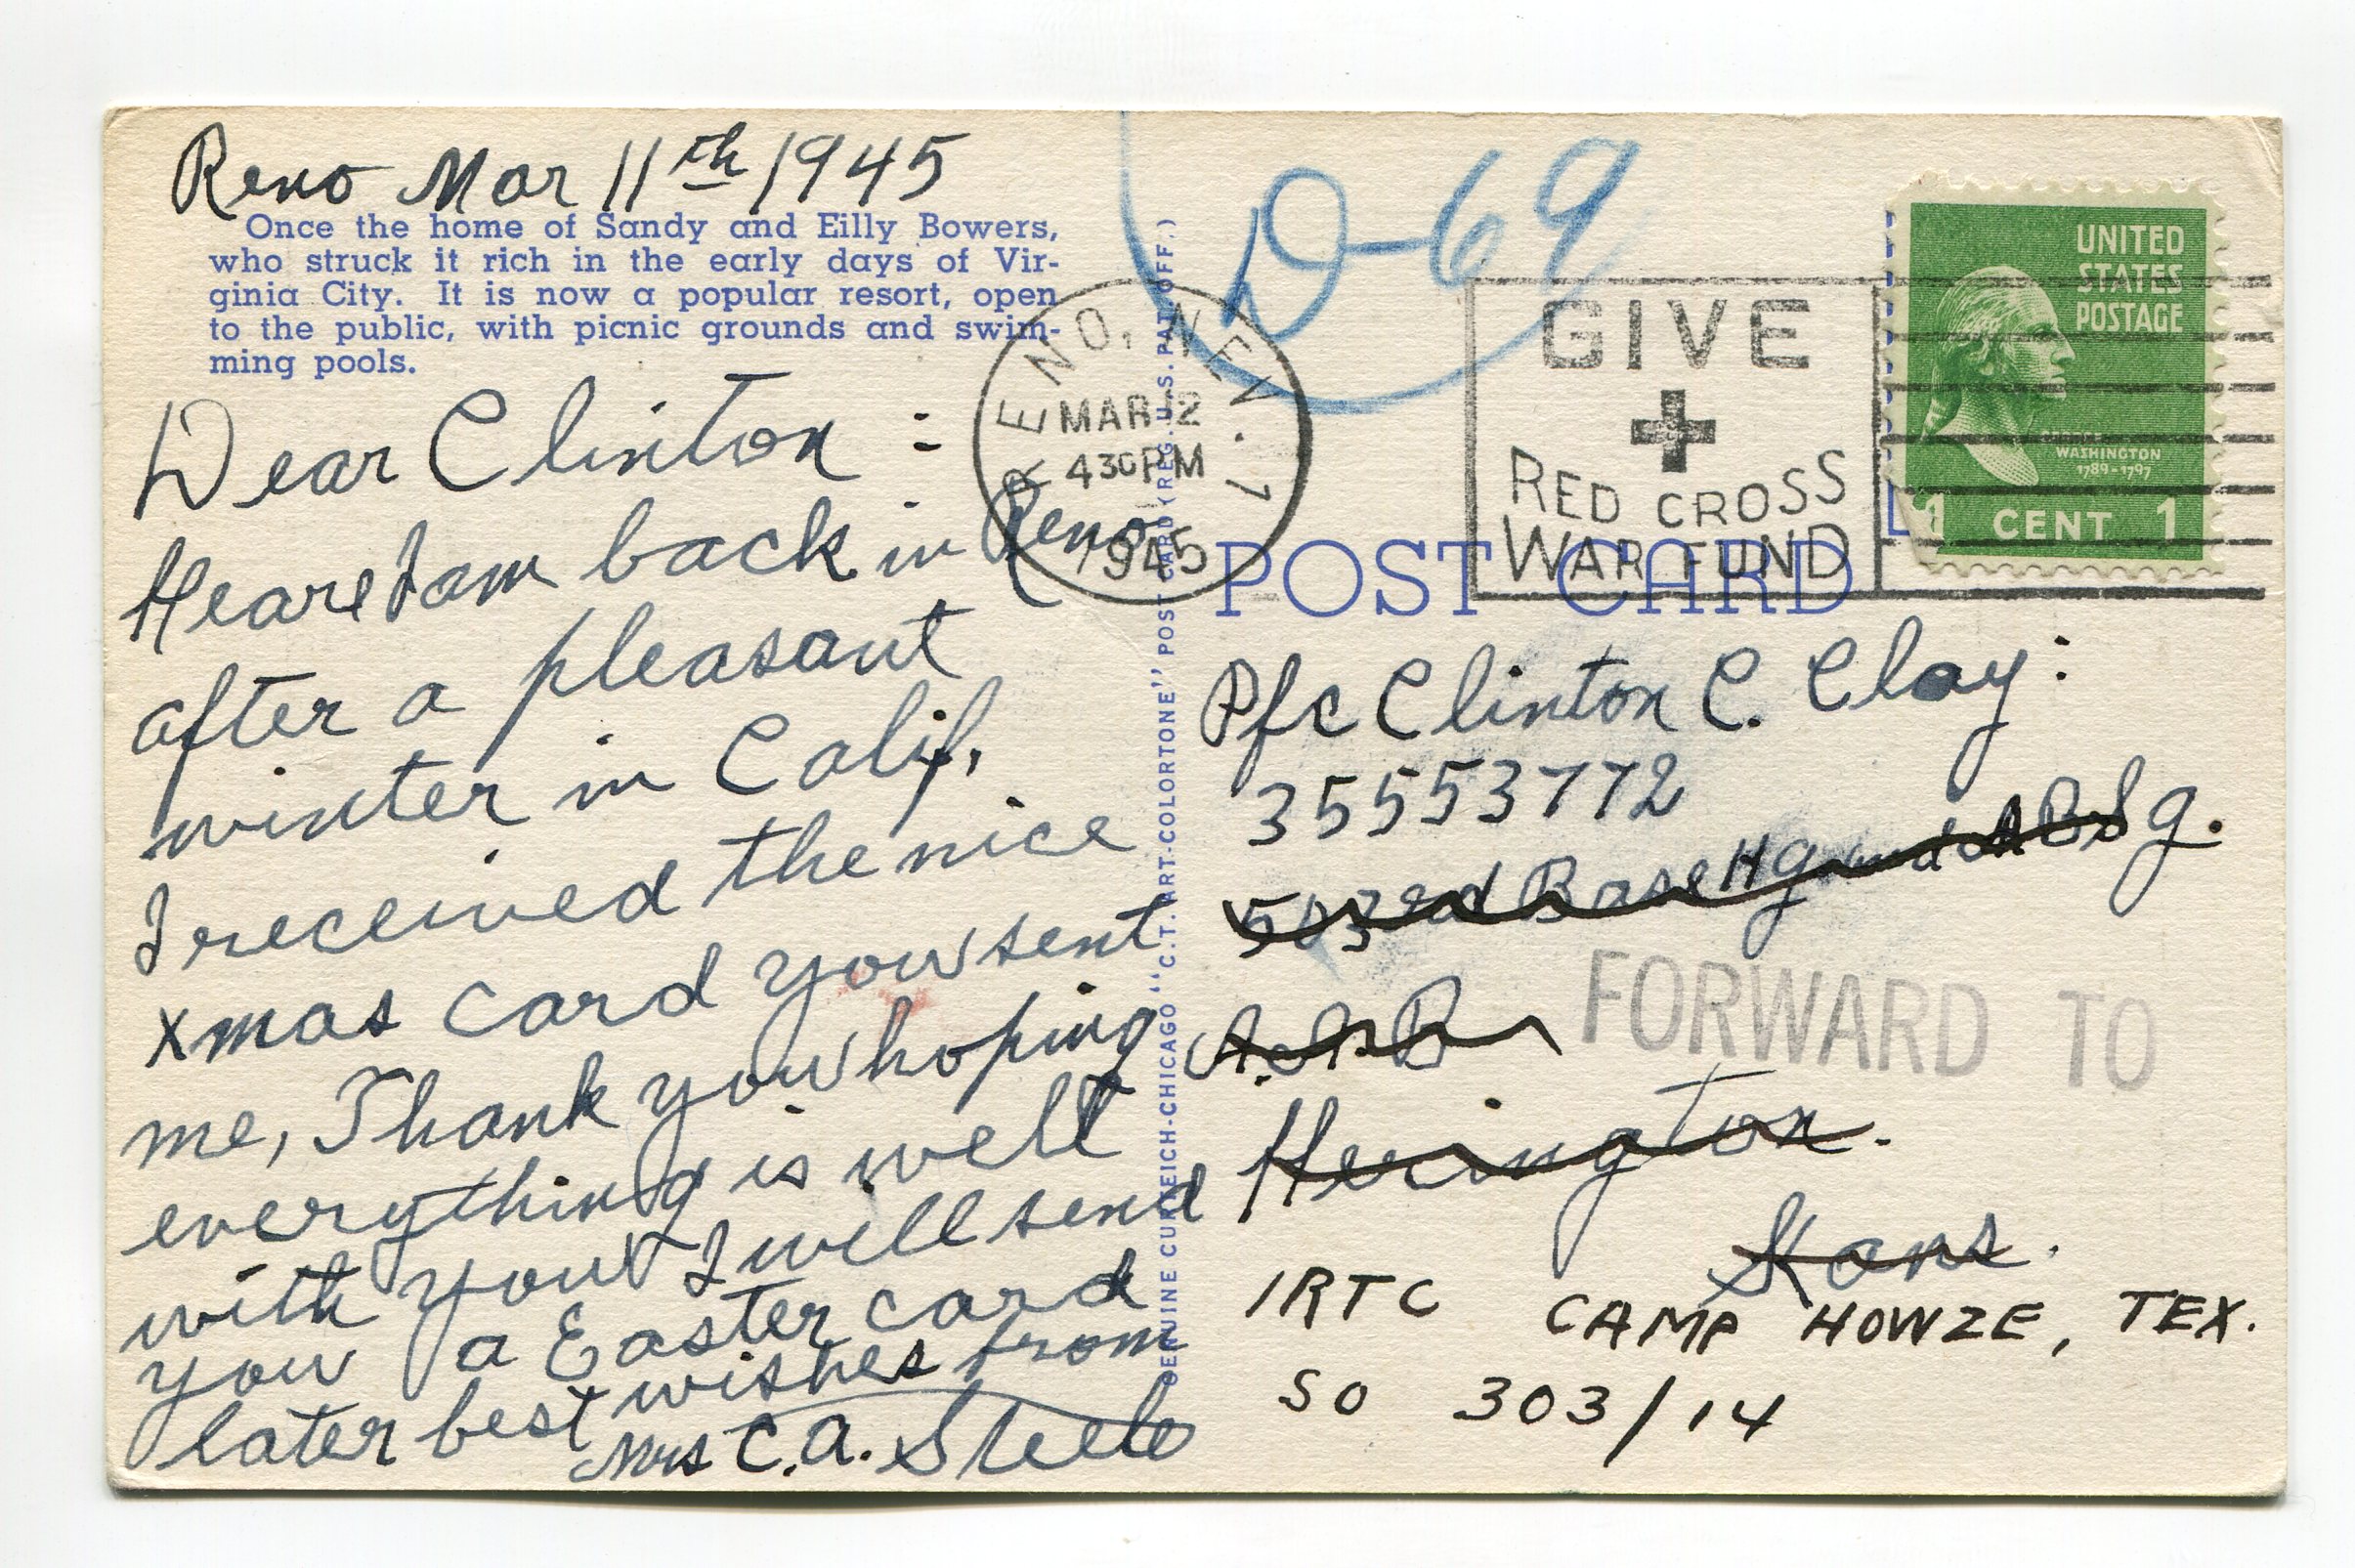 Reno Mar 11th 1945
Once the home of Sandy and Eilly Bowers,
who struck it rich in the early days of Vir-
ginia City. It is now a popular resort, open
to the public, with picnic grounds and swim-
ming pools.
Dear Clinton:
Heare I am back in Reno
after a pleasant
winter in Calif,
I received the nice
xmas card you sent
me, Thank you hoping
everything is well
with you I will send
you a Easter card
later best wishes from
Mrs C.A. Steele
GENUINE CURTEICH-CHICAGO "C.T. ART-COLORTONE" POST CARD (REG. U.S. PAT. OFF.)
D-69
RENO, NEV. 1
MAR 12
430 PM
1945
GIVE
RED CROSS
WAR FUND
UNITED
STATES
POSTAGE
WASHINGTON
1789-1797
1 CENT 1
POST CARD
Pfc Clinton C. Clay:
35553772
503rd Base Hq and A B Sq.
A.A.B
FORWARD TO
Herington.
Kans.
IRTC CAMP HOWZE, TEX.
SO 303/14